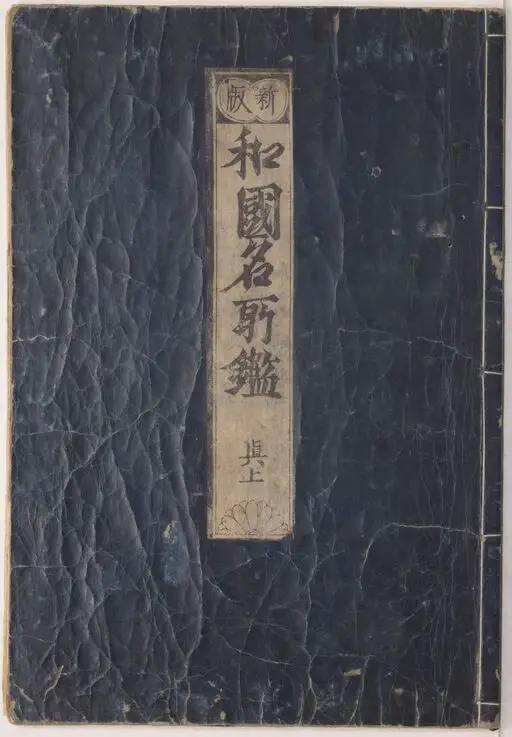 新版
和國名所鑑
真上